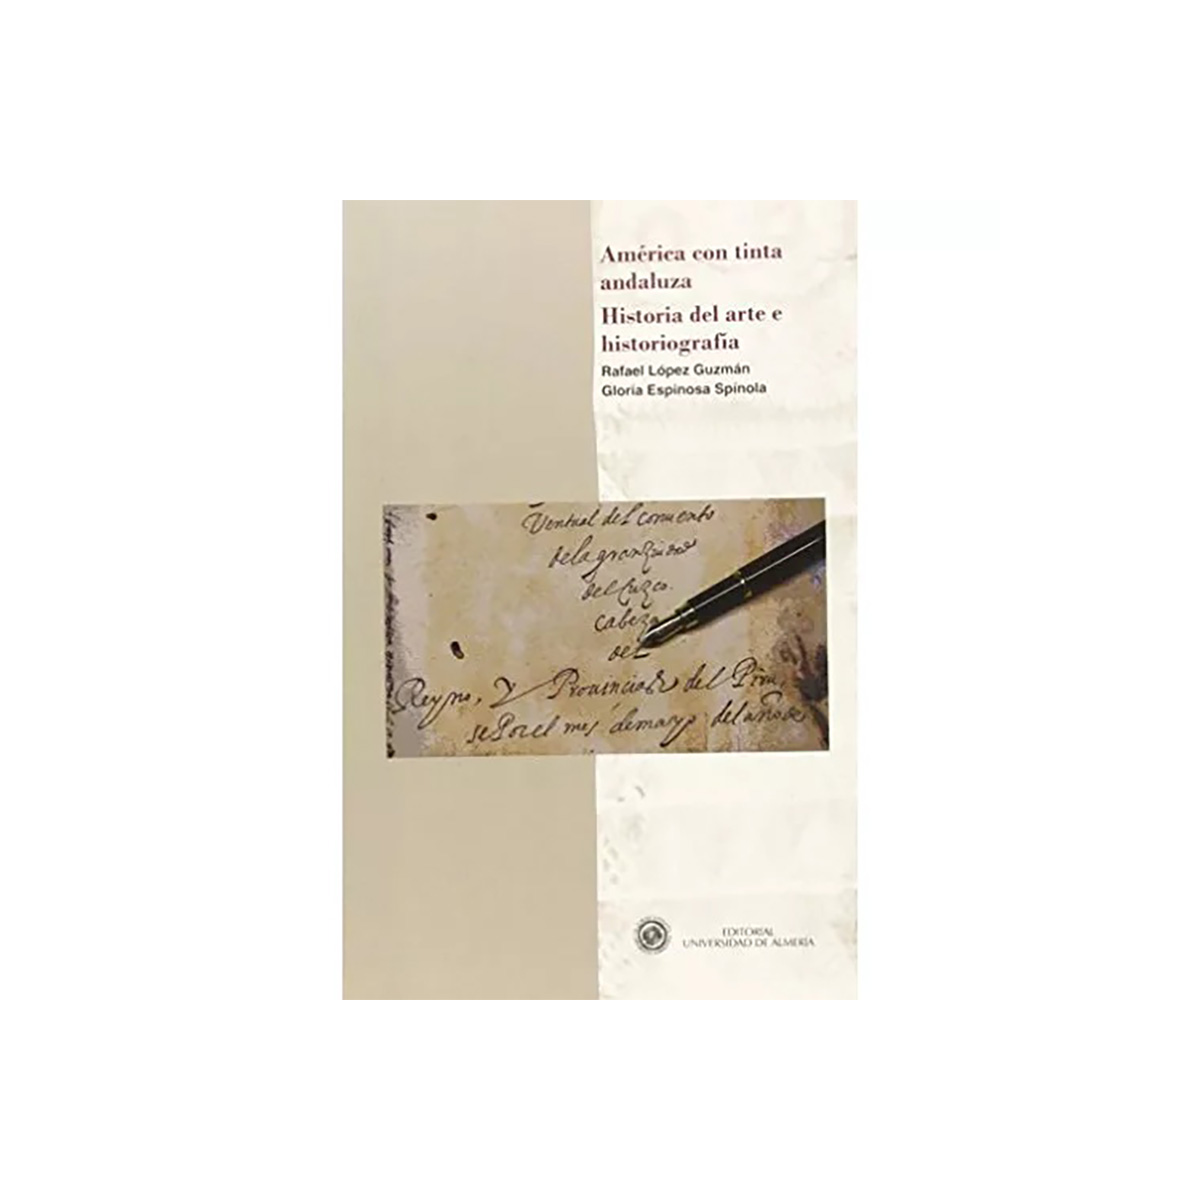 América con tinta
andaluza
Historia del arte e
historiografía
Rafael López Guzmán
Gloria Espinosa Spínola
Ventual del convento
de la
del Cuzco.
Cabeza
del
Reyno, Y Provincias del Piru,
se Por el mes de mayo del año de
EDITORIAL
UNIVERSIDAD DE ALMERÍA